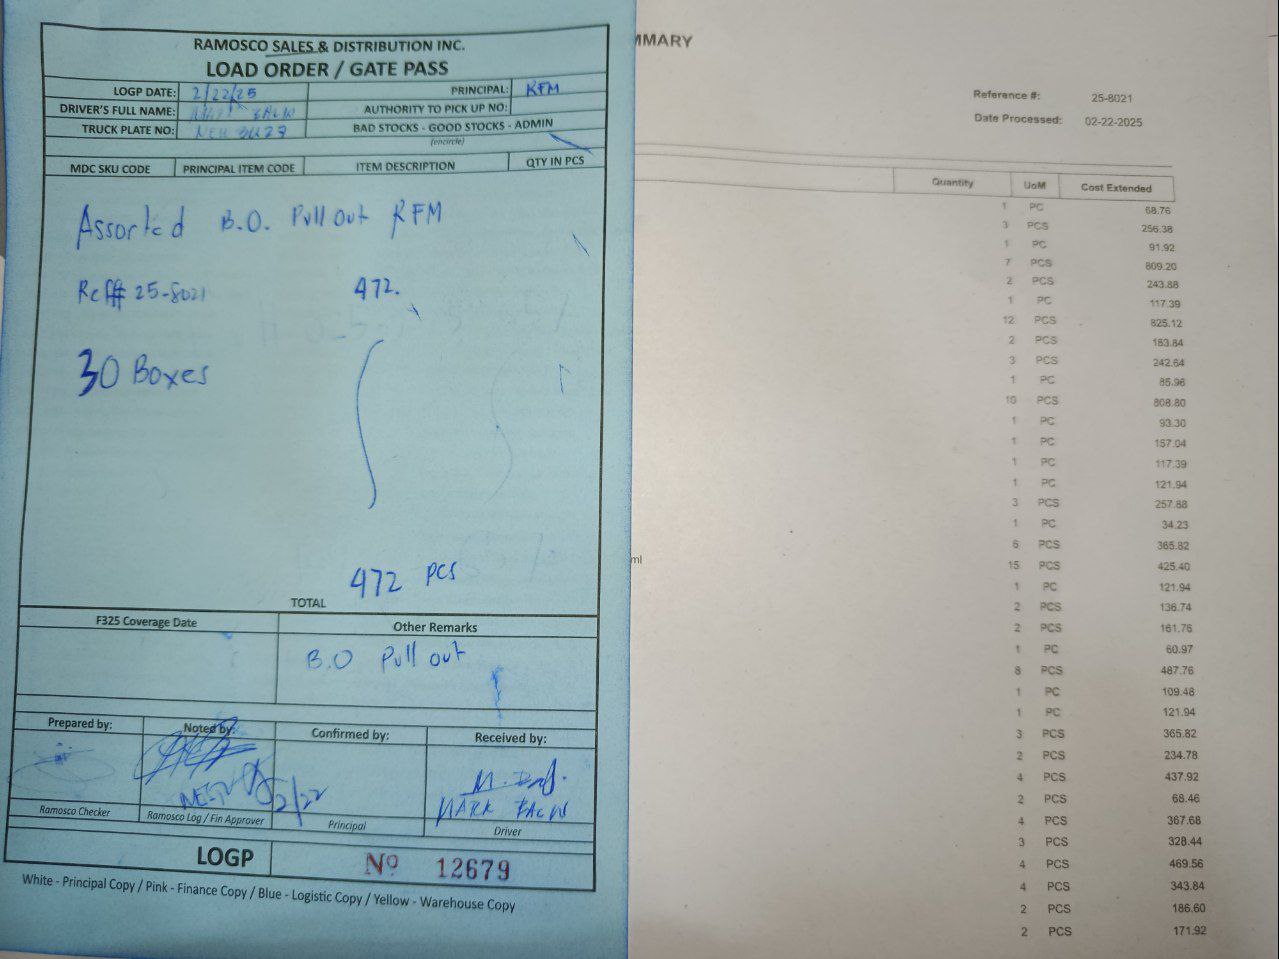 RAMOSCO SALES & DISTRIBUTION INC.
LOAD ORDER / GATE PASS
LOGP DATE: 2/22/25 PRINCIPAL: RFM
DRIVER'S FULL NAME: AUTHORITY TO PICK UP NO:
TRUCK PLATE NO: BAD STOCKS - GOOD STOCKS - ADMIN
(encircle)
MDC SKU CODE PRINCIPAL ITEM CODE ITEM DESCRIPTION QTY IN PCS
Assorted B.O. Pull out RFM
Ref# 25-8021 472.
30 Boxes
472 PCS
TOTAL
F325 Coverage Date Other Remarks
B.O Pull out
Prepared by: Noted by: Confirmed by: Received by:
2/22
MARK
Ramosco Checker Ramosco Log / Fin Approver Principal Driver
LOGP Nº 12679
White - Principal Copy / Pink - Finance Copy / Blue - Logistic Copy / Yellow - Warehouse Copy
MMARY
Reference #: 25-8021
Date Processed: 02-22-2025
Quantity UoM Cost Extended
1 PC 68.76
3 PCS 256.38
1 PC 91.92
7 PCS 809.20
2 PCS 243.88
1 PC 117.39
12 PCS 825.12
2 PCS 183.84
3 PCS 242.64
1 PC 85.96
10 PCS 808.80
1 PC 93.30
1 PC 157.04
1 PC 117.39
1 PC 121.94
3 PCS 257.88
1 PC 34.23
6 PCS 365.82
ml
15 PCS 425.40
1 PC 121.94
2 PCS 136.74
2 PCS 161.76
1 PC 60.97
8 PCS 487.76
1 PC 109.48
1 PC 121.94
3 PCS 365.82
2 PCS 234.78
4 PCS 437.92
2 PCS 68.46
4 PCS 367.68
3 PCS 328.44
4 PCS 469.56
4 PCS 343.84
2 PCS 186.60
2 PCS 171.92